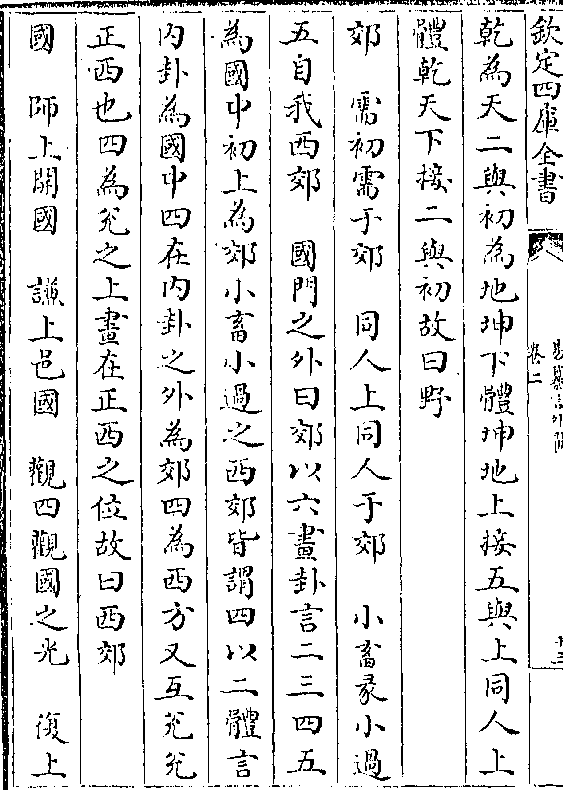 欽定四庫全書
卷二
乾為天二與初為地坤下體坤地上接五與上同人上
體乾天下接二與初故曰野
郊　需初需于郊　同人上同人于郊　小畜彖小過
五自我西郊　國門之外曰郊以六畫卦言二三四五
為國中初上為郊小畜小過之西郊皆謂四以二體言
内卦為國中四在内卦之外為郊四為西方又互兊兊
正西也四為兊之上畫在正西之位故曰西郊
國　師上開國　謙上邑國　觀四觀國之光　復上